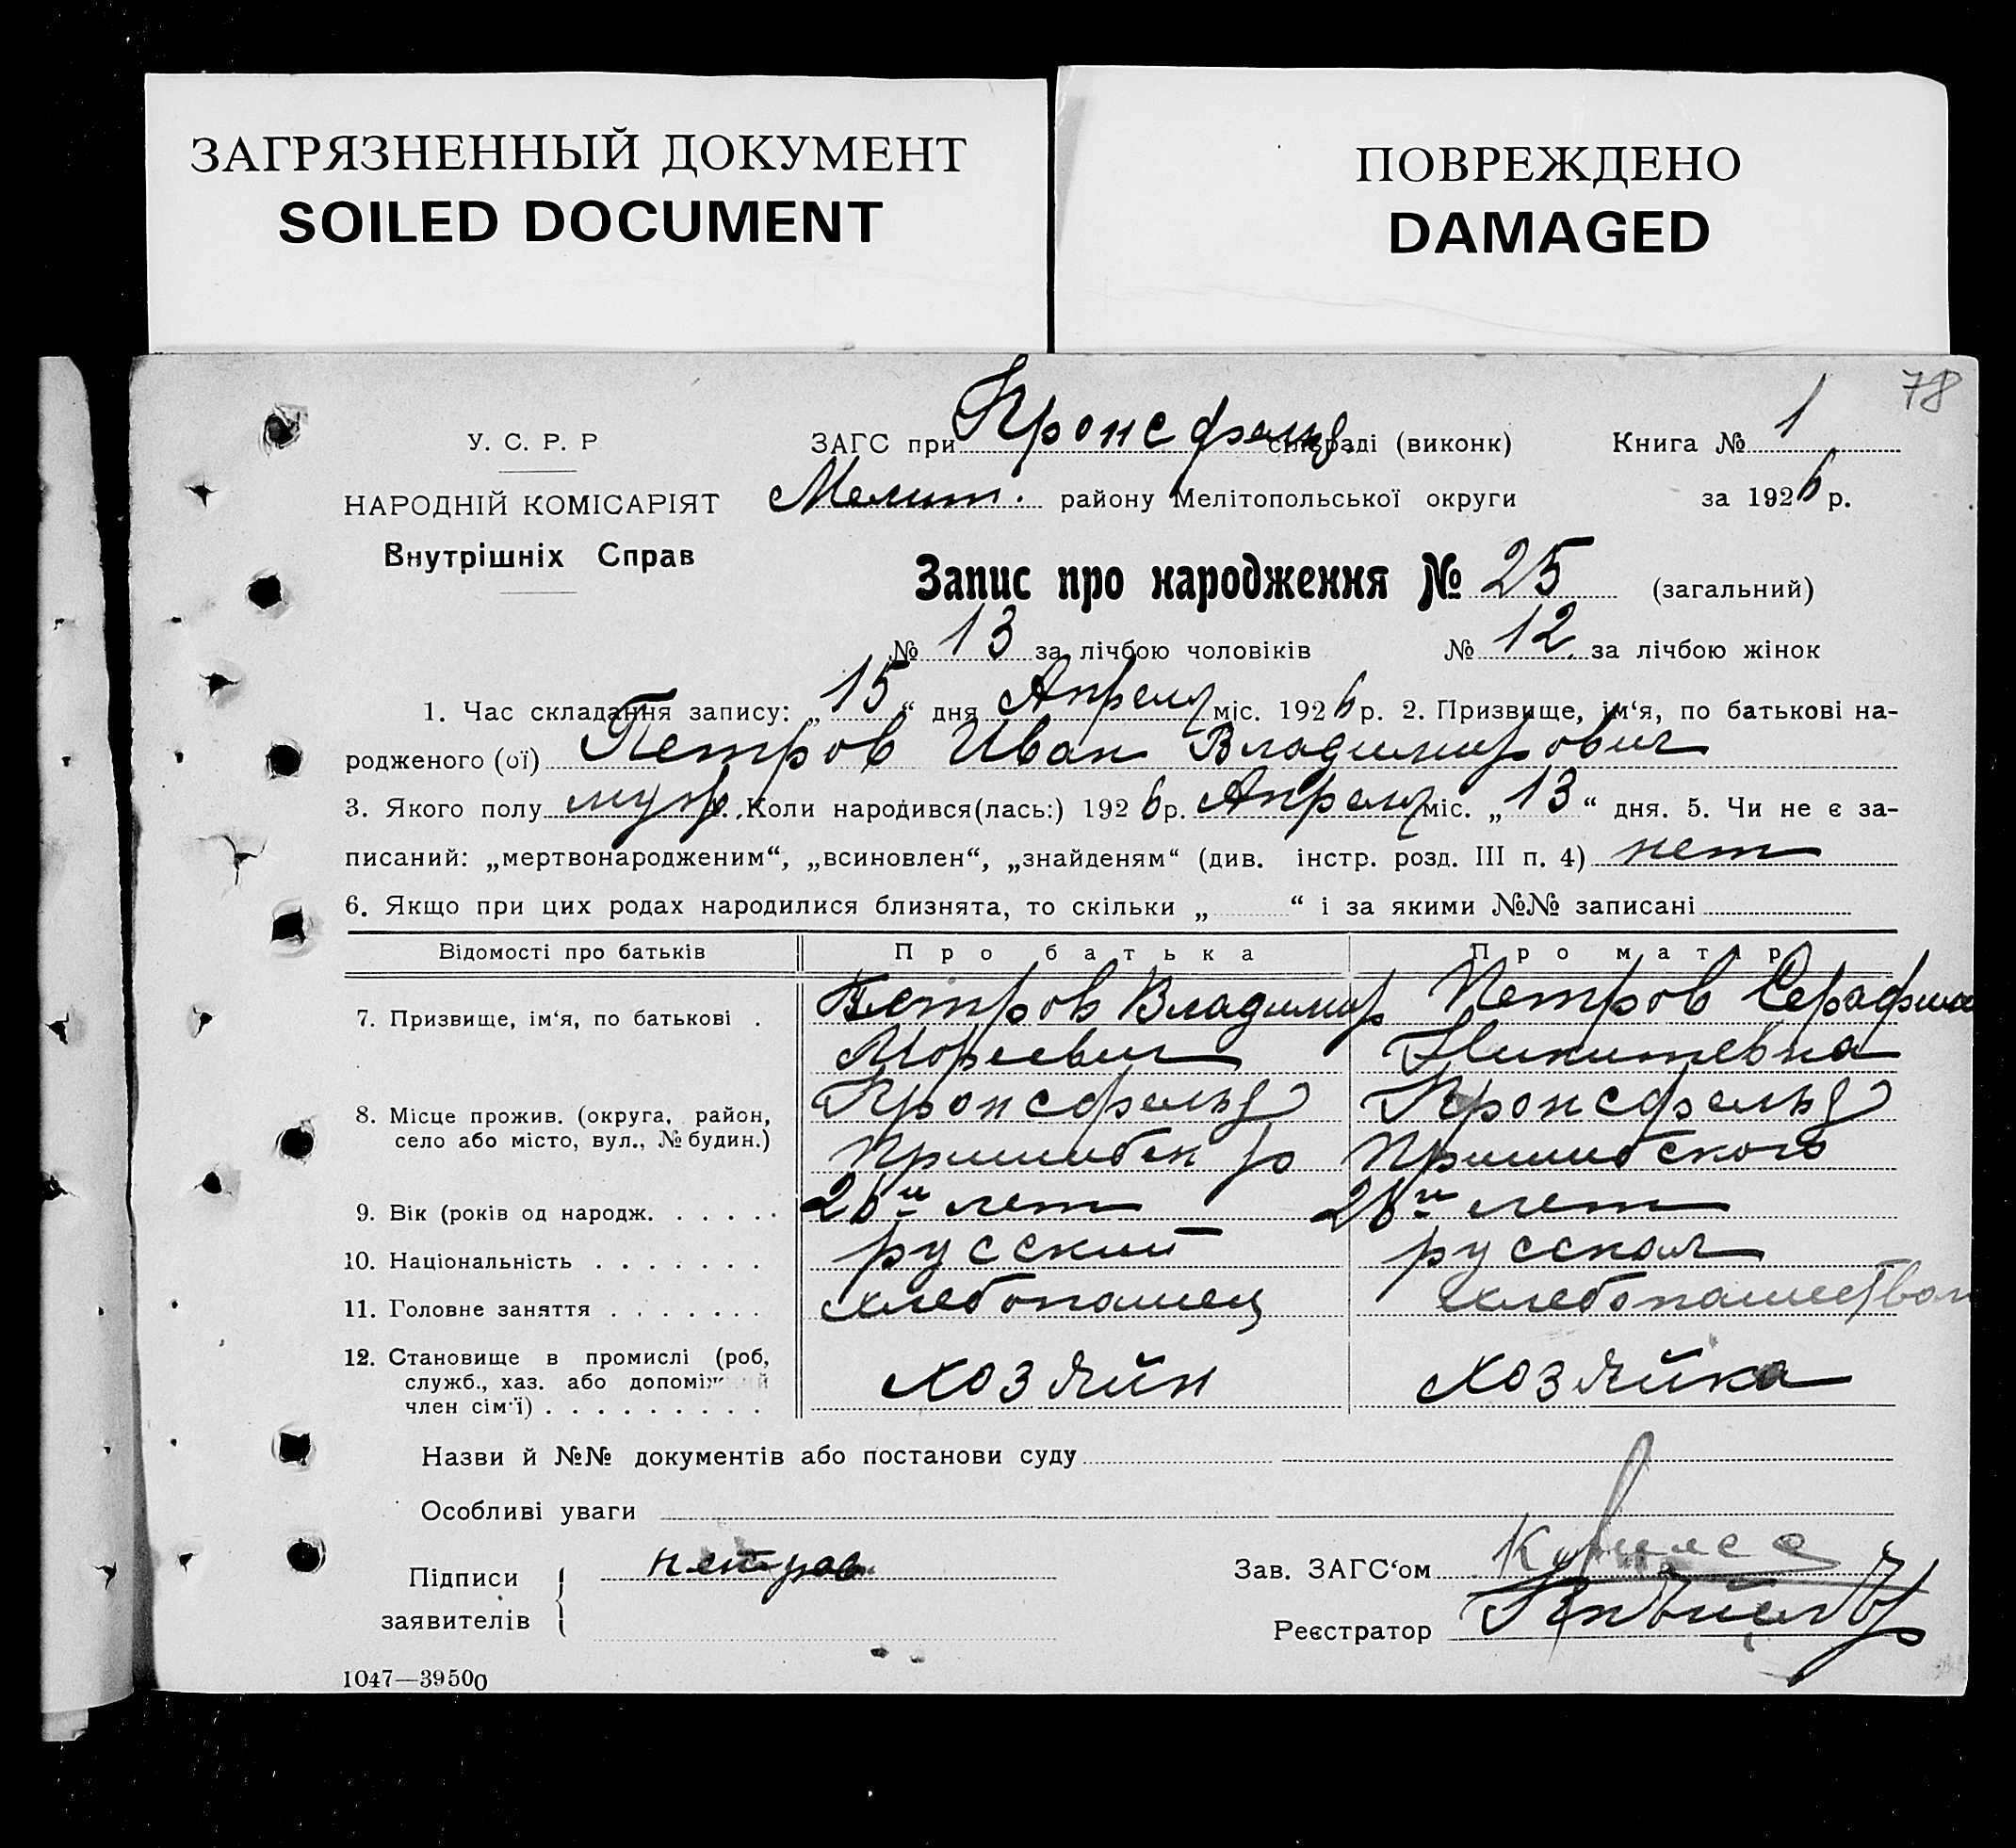 ЗАГРЯЗНЕННЫЙ ДОКУМЕНТ
SOILED DOCUMENT
ПОВРЕЖДЕНО
DAMAGED
78
У. С. Р. Р
НАРОДНІЙ КОМІСАРІЯТ
Внутрішніх Справ
ЗАГС при Кронсфельд сільраді (виконк) Книга № 1
Мелит. району Мелітопольської округи за 1926 р.
Запис про народження № 25 (загальний)
№ 13 за лічбою чоловіків № 12 за лічбою жінок
1. Час складання запису: „15“ дня Апреля міс. 1926 р. 2. Призвище, ім‘я, по батькові на-
родженого (ої) Петров Иван Владимирович
3. Якого полу муж. Коли народився(лась:) 1926 р. Апреля міс. „13“ дня. 5. Чи не є за-
писаний: „мертвонародженим“, „всиновлен“, „знайденям“ (див. інстр. розд. III п. 4) нет
6. Якщо при цих родах народилися близнята, то скільки „ “ і за якими №№ записані
Відомості про батьків Про батька Про матір
7. Призвище, ім‘я, по батькові . Петров Владимир Петров Серафима
Никитевна
8. Місце прожив. (округа, район, Кронсфельд Кронсфельд
село або місто, вул., № будин.) Пришибск Пришибского
9. Вік (років од народж. . . . . . 26 лет 26 лет
10. Національність . . . . . . . русский русская
11. Головне заняття . . . . . . . хлебопашец
12. Становище в промислі (роб,
служб., хаз. або допоміжний хозяйин хозяйка
член сім‘ї) . . . . . . . . .
Назви й №№ документів або постанови суду
Особливі уваги
Підписи петров Зав. ЗАГС‘ом
заявителів Реєстратор
1047—39500